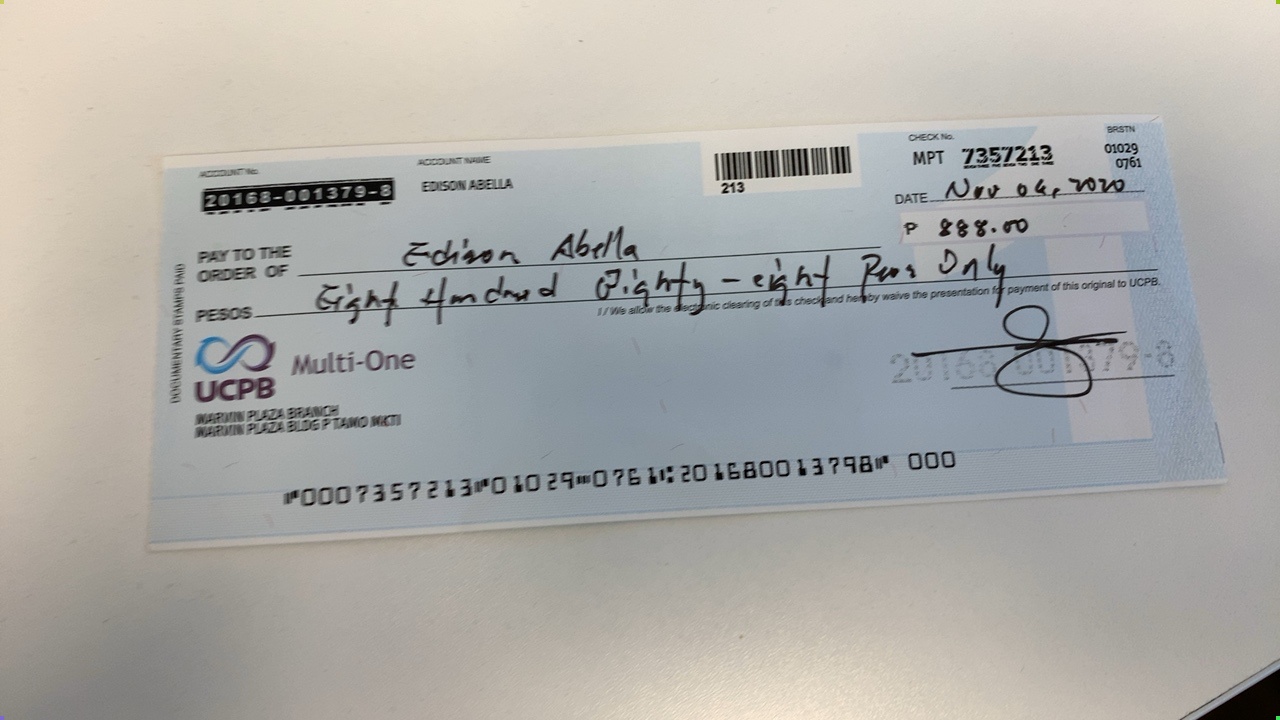 ACCOUNT No.
20168-001379-8
ACCOUNT NAME
EDISON ABELLA
213
CHECK No.
MPT 7357213
BRSTN
01029
0761
DATE Nov 04, 2020
P 888.00
PAY TO THE
ORDER OF Edison Abella
PESOS Eight Hundred Eighty-eight Pesos Only
I / We allow the electronic clearing of this check and hereby waive the presentation for payment of this original to UCPB.
DOCUMENTARY STAMPS PAID
UCPB Multi-One
20168 001379-8
MARVIN PLAZA BRANCH
MARVIN PLAZA BLDG P TAMO MKTI
⑈0007357213⑈01029⑉0761⑆201680013798⑈ 000